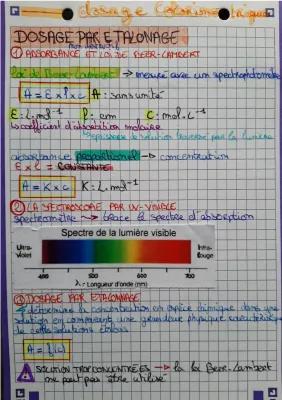 dosage Colorimétrique
DOSAGE PAR ETALONAGE
① ABSORBANCE ET LOI DE BEER-LAMBERT
Loi de Beer-Lambert → mesuré avec un spectrophotomètre
A = Ɛ x l x c A : sans unité
Ɛ : L.mol⁻¹ l : cm c : mol.L⁻¹
↳ coefficient d'absorption molaire
de solution traversée par la lumière
absorbance proportionnel → concentration
Ɛ x l = CONSTANTE
A = K x c K : L.mol⁻¹
② LA SPECTROSCOPIE PAR UV-VISIBLE
spectromètre → trace le spectre d'absorption
Spectre de la lumière visible
Ultra-Violet
Infra-Rouge
400 500 600 700
λ = Longueur d'onde (nm)
③ DOSAGE PAR ETALONNAGE
détermine la concentration en espèce chimique dans une
solution en comparant une grandeur physique
de cette solution
A = f(c)
SOLUTION TROP CONCENTRÉES → la loi Beer-Lambert
ne peut pas être utilisé